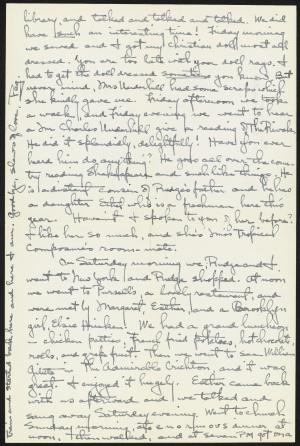 library, and talked and talked and talked. We did
have such an interesting time! Friday morning
we sewed and I got my Christian doll most all
dressed. You are too late with your doll rags. I
had to get the doll dressed you know. But
never mind, Mrs. Underhill had some scraps which
she kindly gave me. Friday afternoon we took
a walk, and Friday evening we went to hear
a Mr. Charles Underhill give a reading of The Rivals.
He did it splendidly, delightful! Have you ever
heard him do anything? He goes all over the coun-
try reading Shakespeare and such like things. He
is a distant cousin of Pudge's father and he has
a daughter who is a freshman here this
year. Haven't I spoken to you of her before?
I like her so much, and she's Miss
room-mate.
On Saturday morning we, Pudge and I,
went to New York and Pudge shopped. At noon
we went to Purssell's, a lovely restaurant, and
were met by Margaret, Esther, and a Brooklyn
girl, Elsie. We had a grand luncheon
chicken patties, French fried potatoes, hot chocolate,
rolls, and grape fruit. Then we went to see William
Gillette in The Admirable Crichton and it was
great. I enjoyed it hugely. Esther came back
with us afterward and we talked and
sang away Saturday evening. Went to church
Sunday morning, ate enormous dinner at
noon, then walked, and at seven P.M. got on a